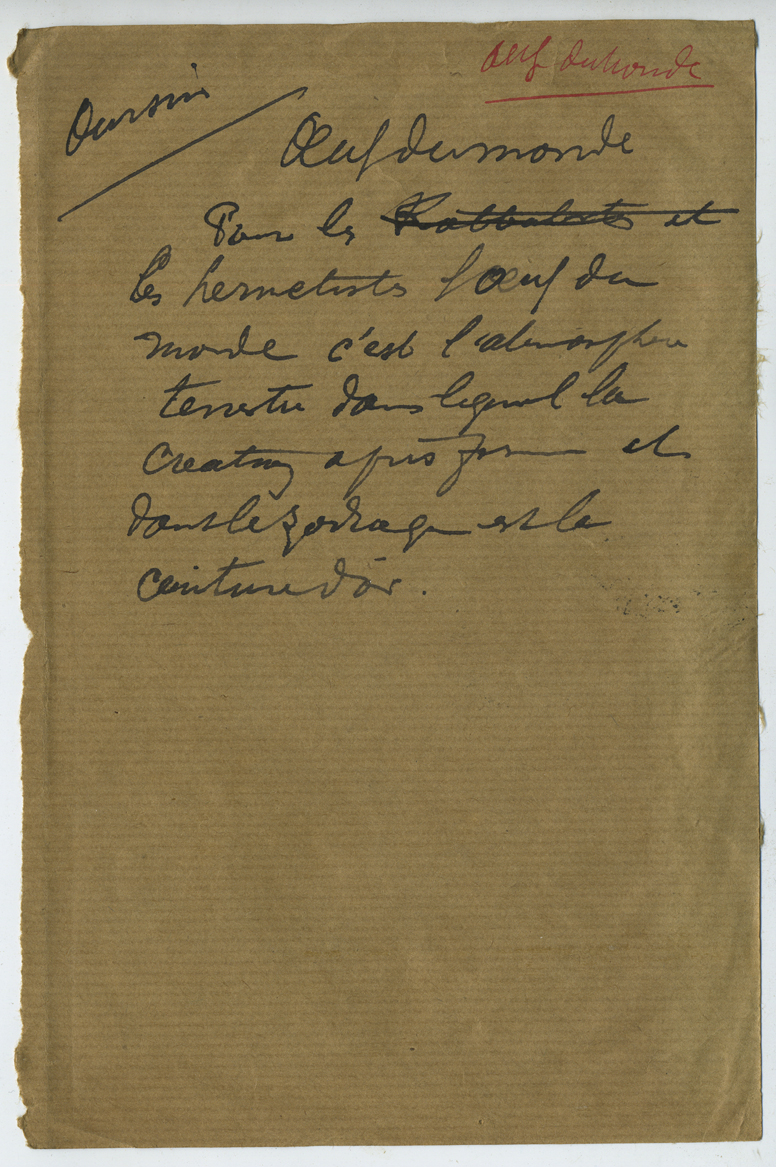 Oeuf du monde
Oursin
Œuf du monde
Pour les Kabbalistes et
les hermetistes l'œuf du
monde c'est l'atmosphère
terrestre dans lequel la
creation a pris forme et
dont le zodiaque est la
ceinture d'or.